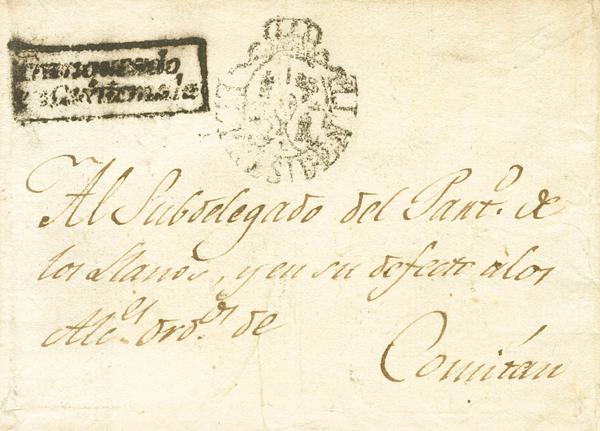 Franqueado
en Guatemala
Al Subdelegado del Part.º de
los Llanos, y en su defecto a los
Alc.es ord.os de
Comitán